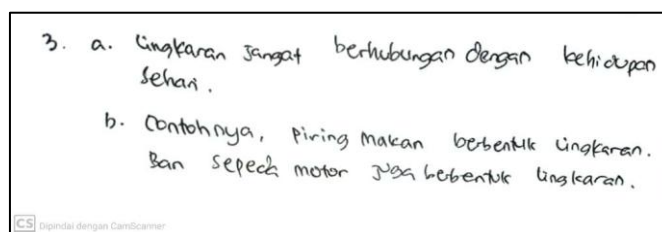 3. a. Lingkaran sangat berhubungan dengan kehidupan
sehari.
b. Contohnya, piring makan berbentuk lingkaran.
Ban sepeda motor juga bebentuk lingkaran.
CS Dipindai dengan CamScanner